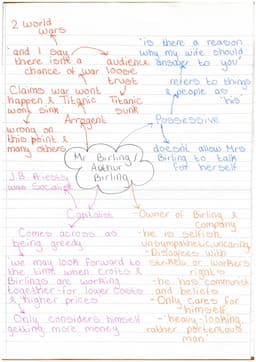 2 world
wars
"and I say
there isn't a
chance of war"
audience
loose
trust
"is there a reason
why my wife should
answer to you"
Claims war wont
happen & Titanic
wont sink
Titanic
sunk
refers to things
& people as
"his"
Arrogent
Possessive
wrong on
this point &
many others
doesn't allow Mrs
Birling to talk
for herself
Mr Birling/
Arthur
Birling
J.B Priestly
was Socialist
Capitalist
Comes across as
being greedy
"we may look forward to
the time when Crofts &
Birlings are working
together - for lower costs
& higher prices"
Only considers himself
getting more money
- Owner of Birling &
company
- he is selfish,
unsympathetic, uncaring
- Disagrees with
strikers or workers
rights
- he has communist
and beliefs
- Only cares for
himself
- "heavy-looking,
rather portentous
man"